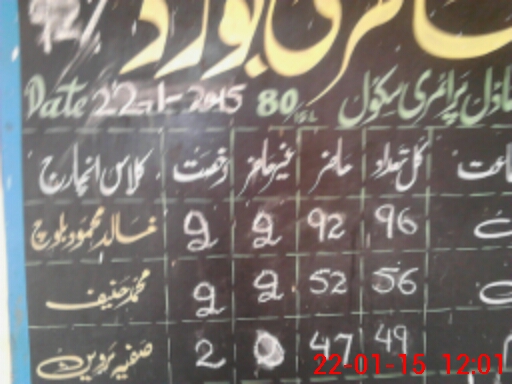 بورڈ
ماڈل پرائمری سکول 80/15L Date 22-1-2015
کل تعداد حاضر غیر حاضر رخصت کلاس انچارج
96 92 2 2 خالد محمود بلوچ
56 52 2 2 محمد حنیف
49 47 0 2 صفیہ پروین
22-01-15 12:01